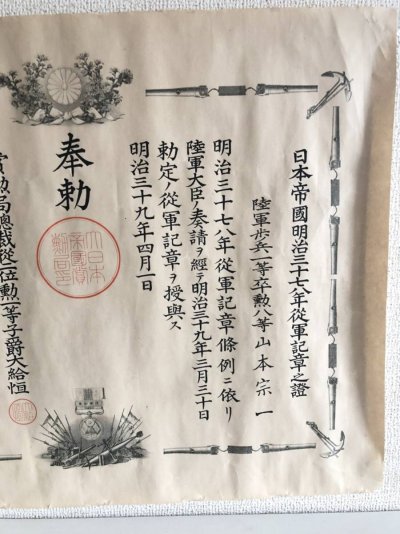 日本帝國明治三十七八年從軍記章之證
陸軍歩兵一等卒勲八等山本宗一
明治三十七八年從軍記章條例ニ依リ
陸軍大臣ノ奏請ヲ經テ明治三十九年三月三十日
勅定ノ從軍記章ヲ授與ス
明治三十九年四月一日
奉勅
大日本
帝國賞
勲局印
賞勲局總裁從二位勲一等子爵大給恒